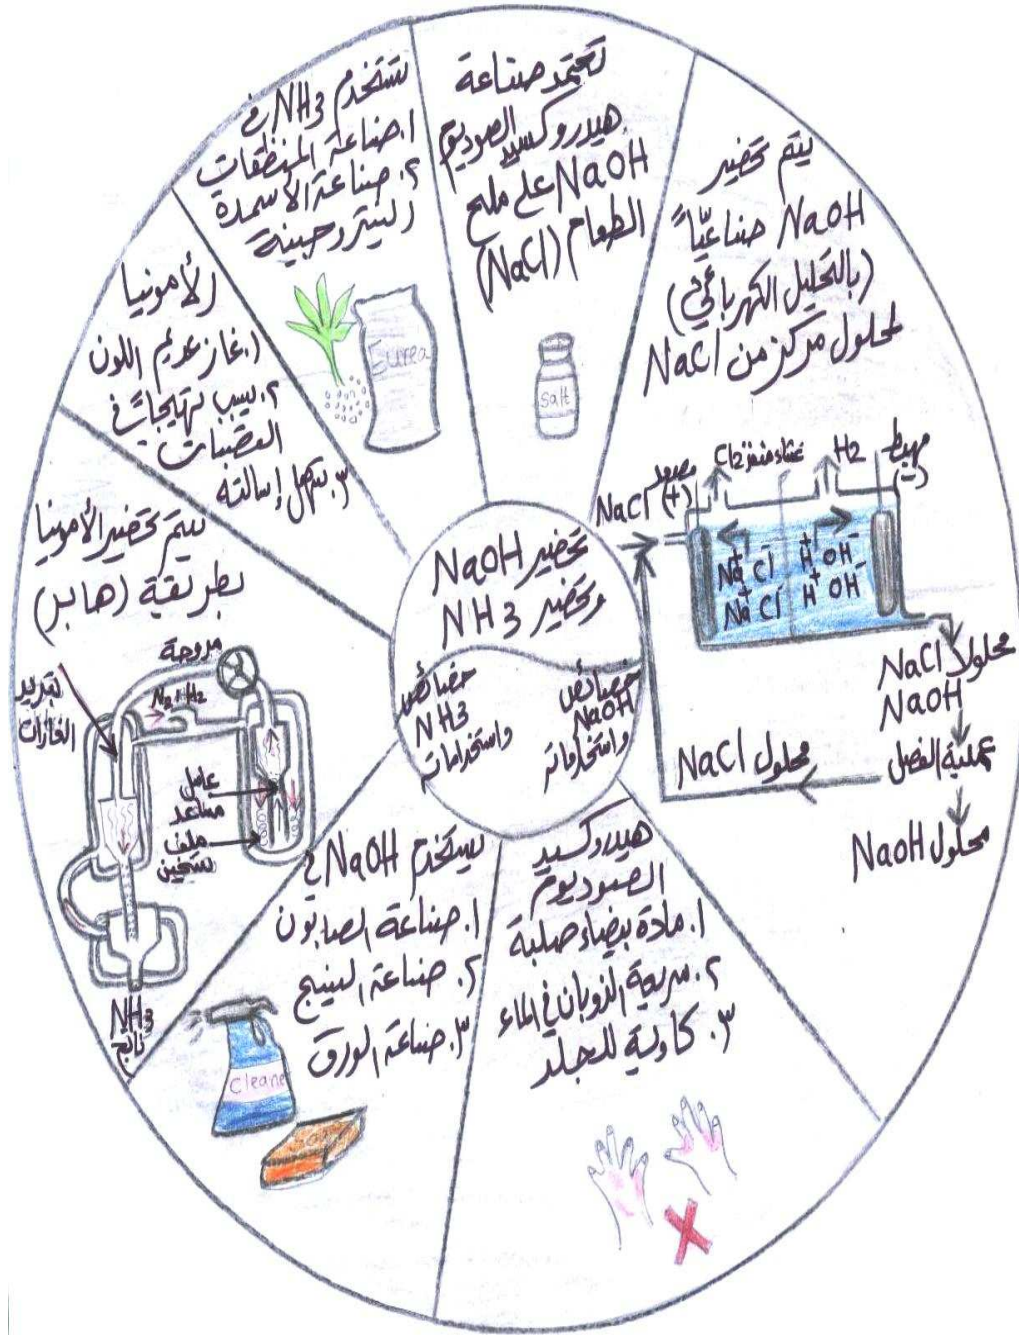 تحضير NaOH
وتحضير NH3
خصائص
NaOH
واستخداماته
خصائص
NH3
واستخداماته
تعتمد صناعة
هيدروكسيد الصوديوم
NaOH على ملح
الطعام (NaCl)
salt
يتم تحضير
NaOH صناعيًّا
(بالتحليل الكهربائي)
لمحلول مركز من NaCl
مهبط
(-)
H2
غشاء منفذ
Cl2
مصعد
(+)
NaCl
Na+ Cl- H+ OH-
Na+ Cl- H+ OH-
محلولا
NaCl
NaOH
عملية الفصل
محلول NaCl
محلول NaOH
هيدروكسيد
الصوديوم
١. مادة بيضاء صلبة
٢. سريعة الذوبان في الماء
٣. كاوية للجلد
يستخدم NaOH في
١. صناعة الصابون
٢. صناعة النسيج
٣. صناعة الورق
Cleane
يتم تحضير الأمونيا
بطريقة (هابر)
مروحة
N2+H2
تبريد
الغازات
عامل
مساعد
ملف
تسخين
NH3
ناتج
الأمونيا
١. غاز عديم اللون
٢. يسبب تهيجات في
القصبات
٣. تسهل إسالته
تستخدم NH3 في
١. صناعة المنظفات
٢. صناعة الأسمدة
النيتروجينية
urea